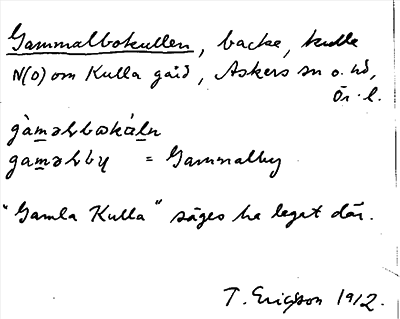 Gammalbokullen, backe, kulle
N(O) om Kulla gård, Askers sn o. hd,
Ör. l.
gàmәlbɷkáln
gamәlby = Gammalby
"Gamla Kulla" säges ha legat där.
T. Ericsson 1912.